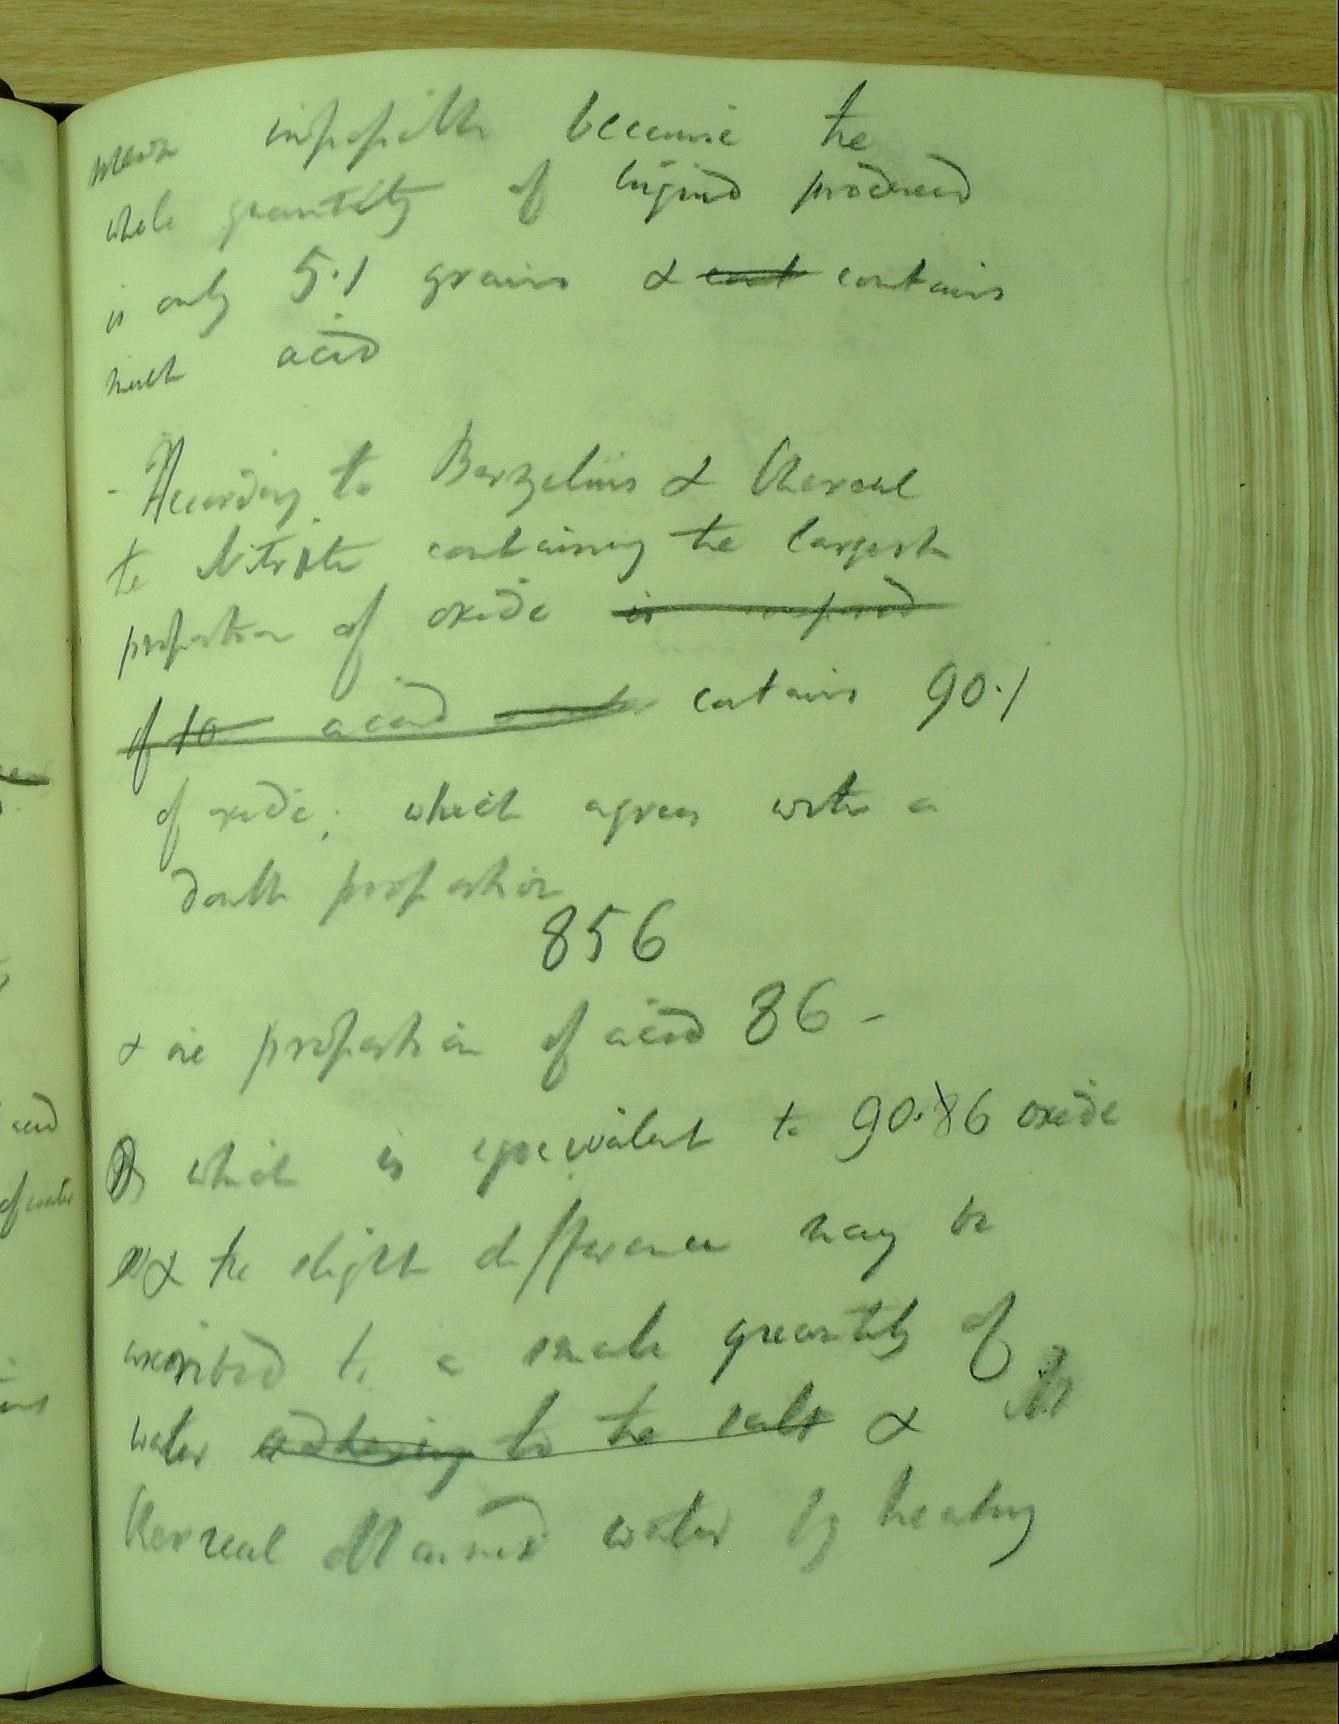 seems impossible because the
whole quantity of liquid produced
is only 5.1 grains & cont contains
much acid
- According to Berzelius & Chevreul
the Nitrite containing the largest
proportion of oxide is composed
of 10 acid contains 90.1
of oxide; which agrees with a
double proportion
856
& one proportion of acid 86 -
which is equivalent to 90.86 oxide
& the slight difference may be
ascribed to a small quantity of
water adhering to the salt & Mr
Chevreul obtained water by heating
acid
of water